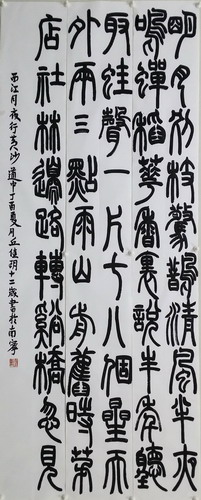 明月別枝驚鵲清風半夜
鳴蟬稻華香裏說丰年聽
取蛙聲一片七八個星天
外兩三點雨山前舊時茅
店社林邊路轉谿橋忽見
西江月夜行黄沙道中丁酉夏月丘十二歲書於南寧